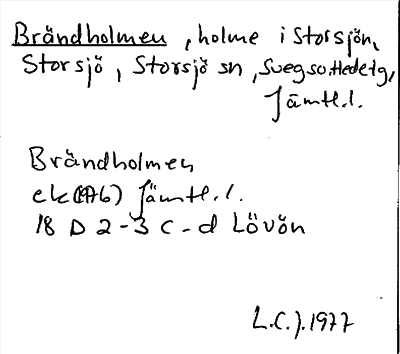 Brändholmen, holme i Storsjön,
Storsjö, Storsjö sn, Svegs o. Hede tg,
Jämtl.l.
Brändholmen
ek (1976) Jämtl.l.
18 D 2-3 C-d Lövön
L.C.J. 1977